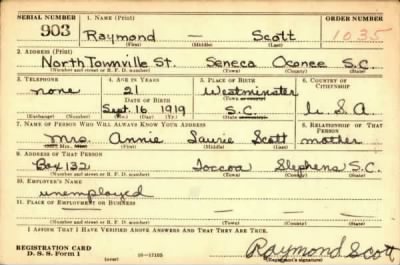 SERIAL NUMBER 1. NAME (Print) ORDER NUMBER
903 Raymond — Scott 1035
(First) (Middle) (Last)
2. ADDRESS (Print)
North Townville St. Seneca Oconee S.C.
(Number and street or R. F. D. number) (Town) (County) (State)
3. TELEPHONE 4. AGE IN YEARS 5. PLACE OF BIRTH 6. COUNTRY OF CITIZENSHIP
none 21 Westminster
DATE OF BIRTH (Town or county)
Sept. 16, 1919 S.C. U.S.A
(Exchange) (Number) (Mo.) (Day) (Yr.) (State or country)
7. NAME OF PERSON WHO WILL ALWAYS KNOW YOUR ADDRESS 8. RELATIONSHIP OF THAT PERSON
Mrs. Annie Laurie Scott mother
(First) (Middle) (Last)
9. ADDRESS OF THAT PERSON
Box 132 Toccoa Stephens S.C.
(Number and street or R. F. D. number) (Town) (County) (State)
10. EMPLOYER'S NAME
unemployed
11. PLACE OF EMPLOYMENT OR BUSINESS
(Number and street or R. F. D. number) (Town) (County) (State)
I AFFIRM THAT I HAVE VERIFIED ABOVE ANSWERS AND THAT THEY ARE TRUE.
REGISTRATION CARD
D. S. S. Form 1 (over) 16—17105 Raymond Scott
(Registrant's signature)